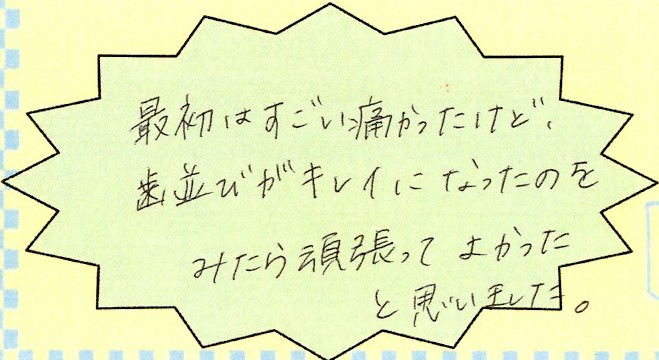 最初はすごい痛かったけど、
歯並びがキレイになったのを
みたら頑張ってよかった
と思いました。